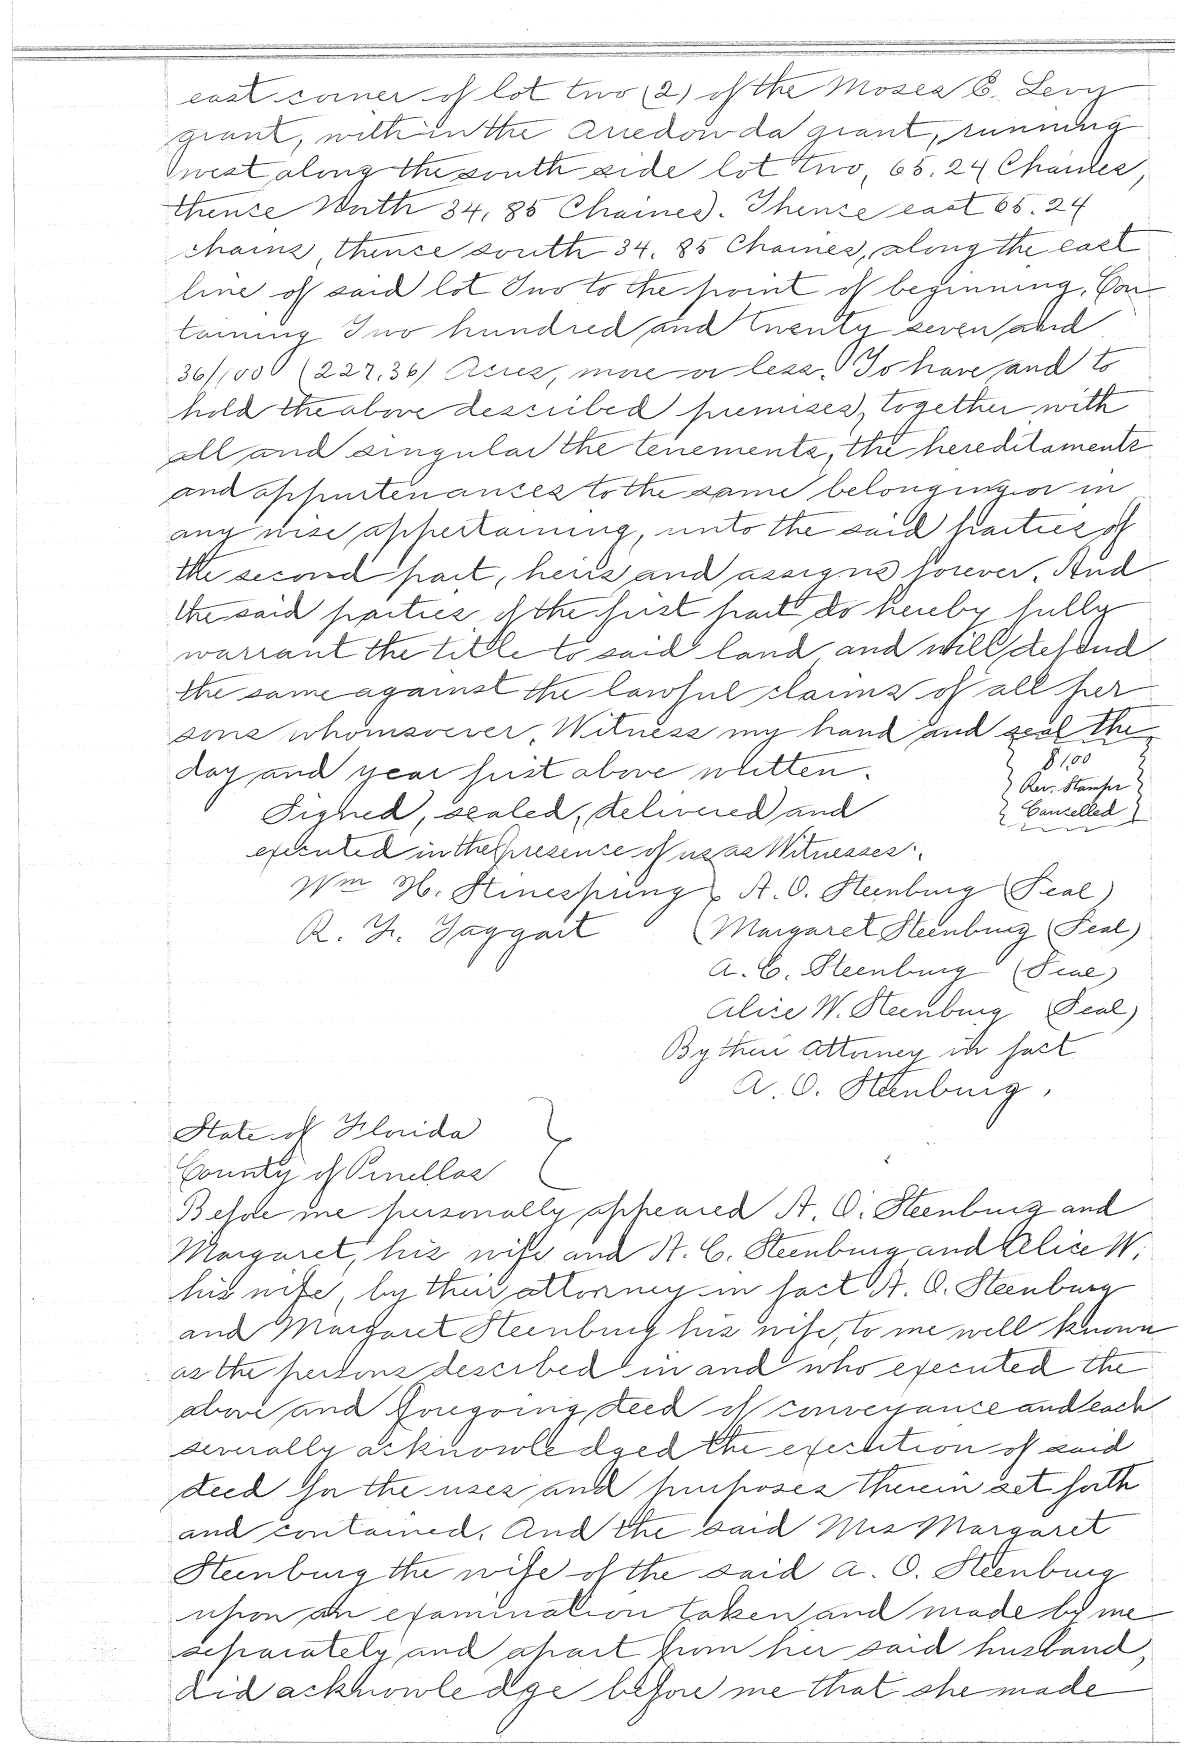 east corner of lot two (2) of the Moses E. Levy
grant, within the Arredonda grant, running
west along the south side lot two, 65.24 Chaines,
thence North 34.85 Chaines. Thence east 65.24
chains, thence south 34.85 Chaines, along the east
line of said lot Two to the point of beginning. Con
taining Two hundred and twenty seven and
36/100 (227.36) Acres, more or less. To have and to
hold the above described premises, together with
all and singular the tenements, the hereditaments
and appurtenances to the same belonging or in
any wise appertaining, unto the said parties of
the second part, heirs and assigns forever. And
the said parties of the first part do hereby fully
warrant the title to said land and will defend
the same against the lawful claims of all per
sons whomsoever. Witness my hand and seal the
day and year first above written.
$1.00
Rev. Stamps
Cancelled
Signed, sealed, delivered and
executed in the presence of us as Witnesses:
Wm H. Stinespring A. O. Steenburg (Seal)
R. F. Taggart Margaret Steenburg (Seal)
A. C. Steenburg (Seal)
Alice W. Steenburg (Seal)
By their Attorney in fact
A. O. Steenburg.
State of Florida
County of Pinellas
Before me personally appeared A. O. Steenburg and
Margaret, his wife and A. C. Steenburg and Alice W.
his wife, by their attorney in fact A. O. Steenburg
and Margaret Steenburg his wife, to me well known
as the persons described in and who executed the
above and foregoing deed of conveyance and each
severally acknowledged the execution of said
deed for the uses and purposes therein set forth
and contained. And the said Mrs Margaret
Steenburg the wife of the said A. O. Steenburg
upon an examination taken and made by me
separately and apart from her said husband,
did acknowledge before me that she made